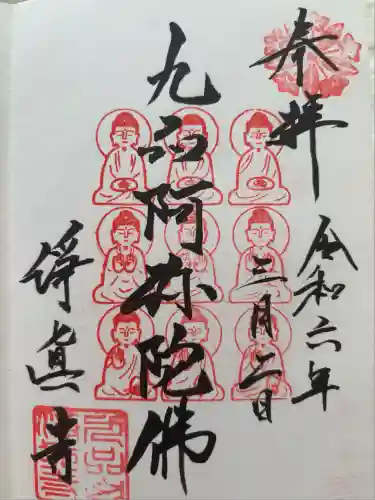 奉拝
令和六年
三月二日
九品阿弥陀佛
浄真寺